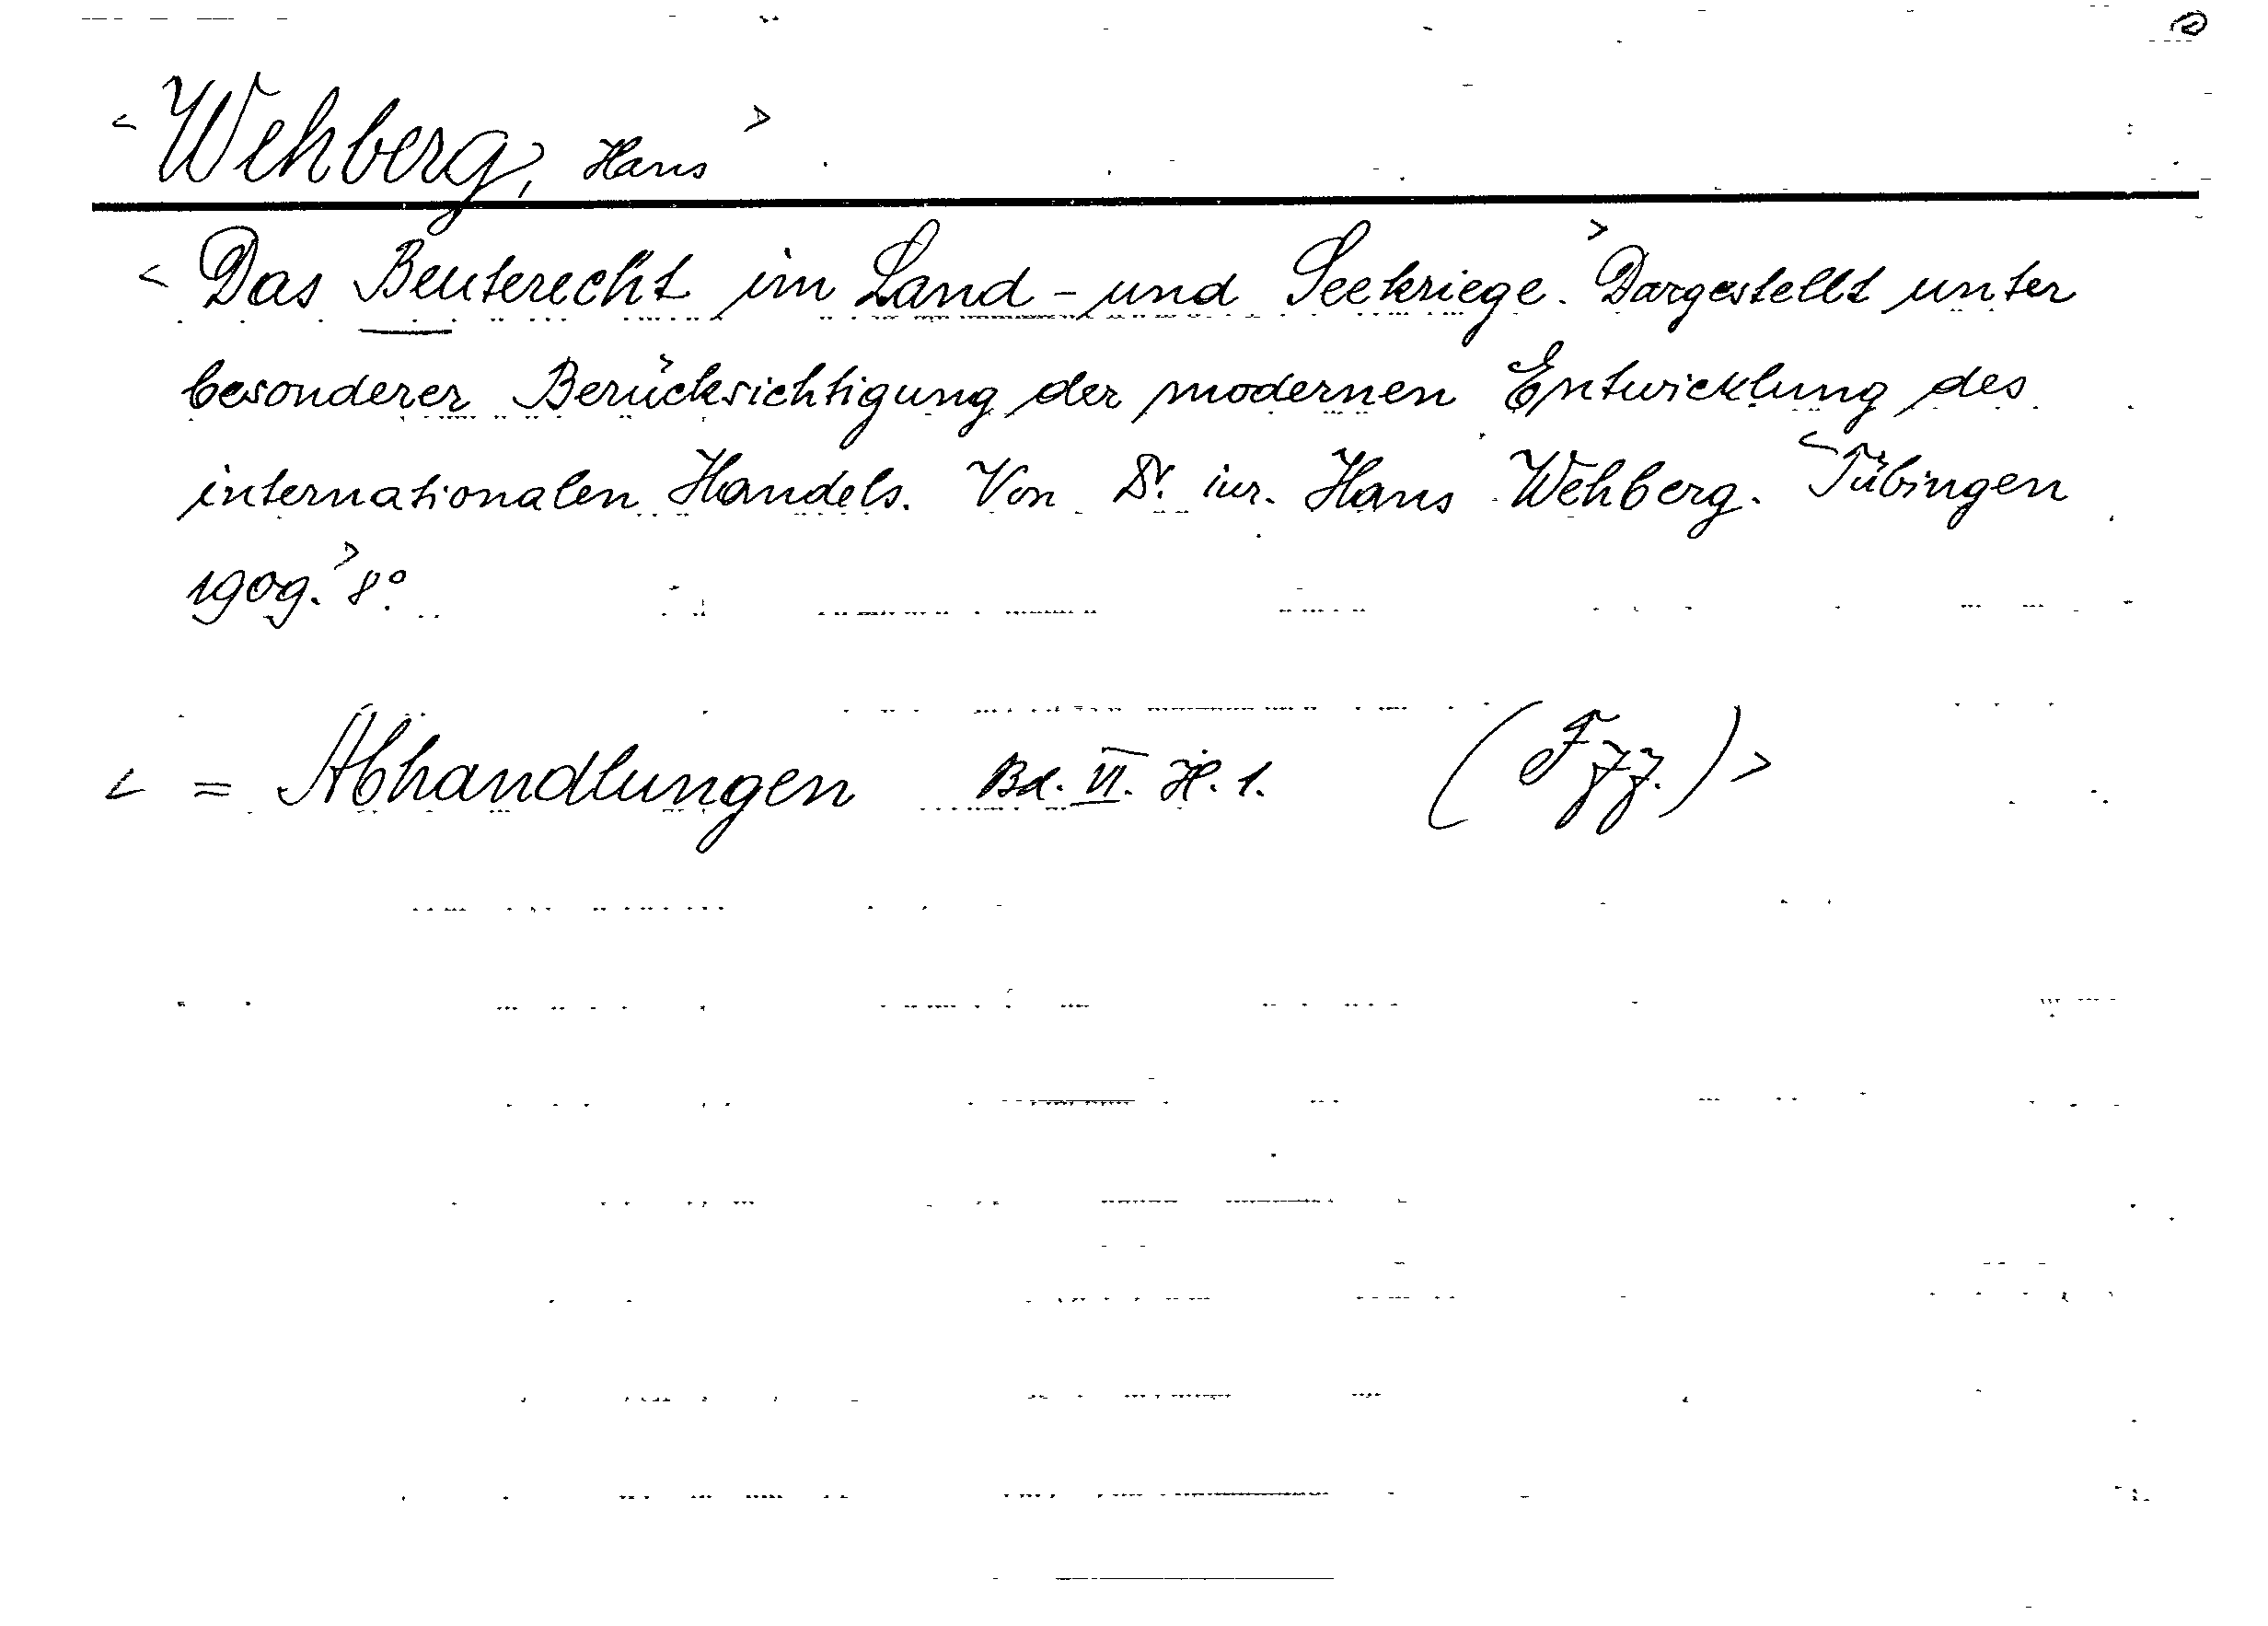 < Wehberg, Hans >
< Das Beuterecht im Land - und Seekriege. > Dargestellt unter
besonderer Berücksichtigung der modernen Entwicklung des
internationalen Handels. Von Dr. iur. Hans Wehberg. < Tübingen
1909. > 8°.
< = Abhandlungen Bd. VI. H. 1. (F 77.) >